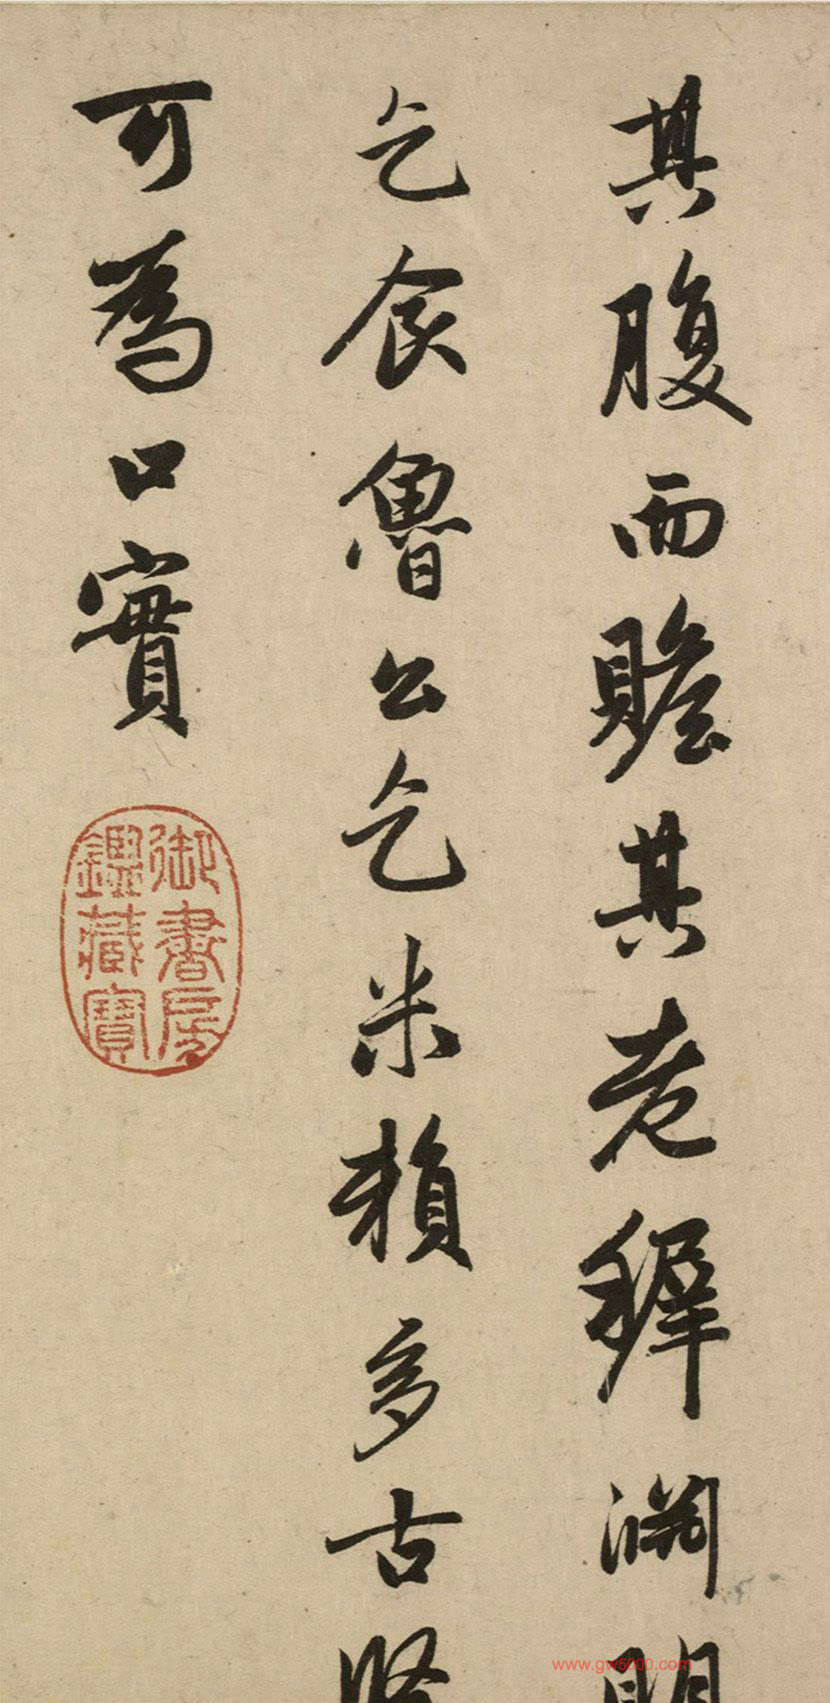 其腹而贍其老稺淵明
乞食魯公乞米賴多古賢
可為口實
御書房
鑑藏寶
www.gw5000.com